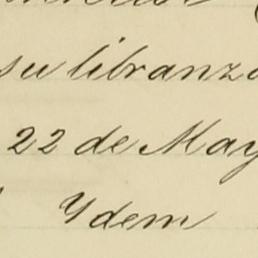 su libranza
22 de May
Ydem